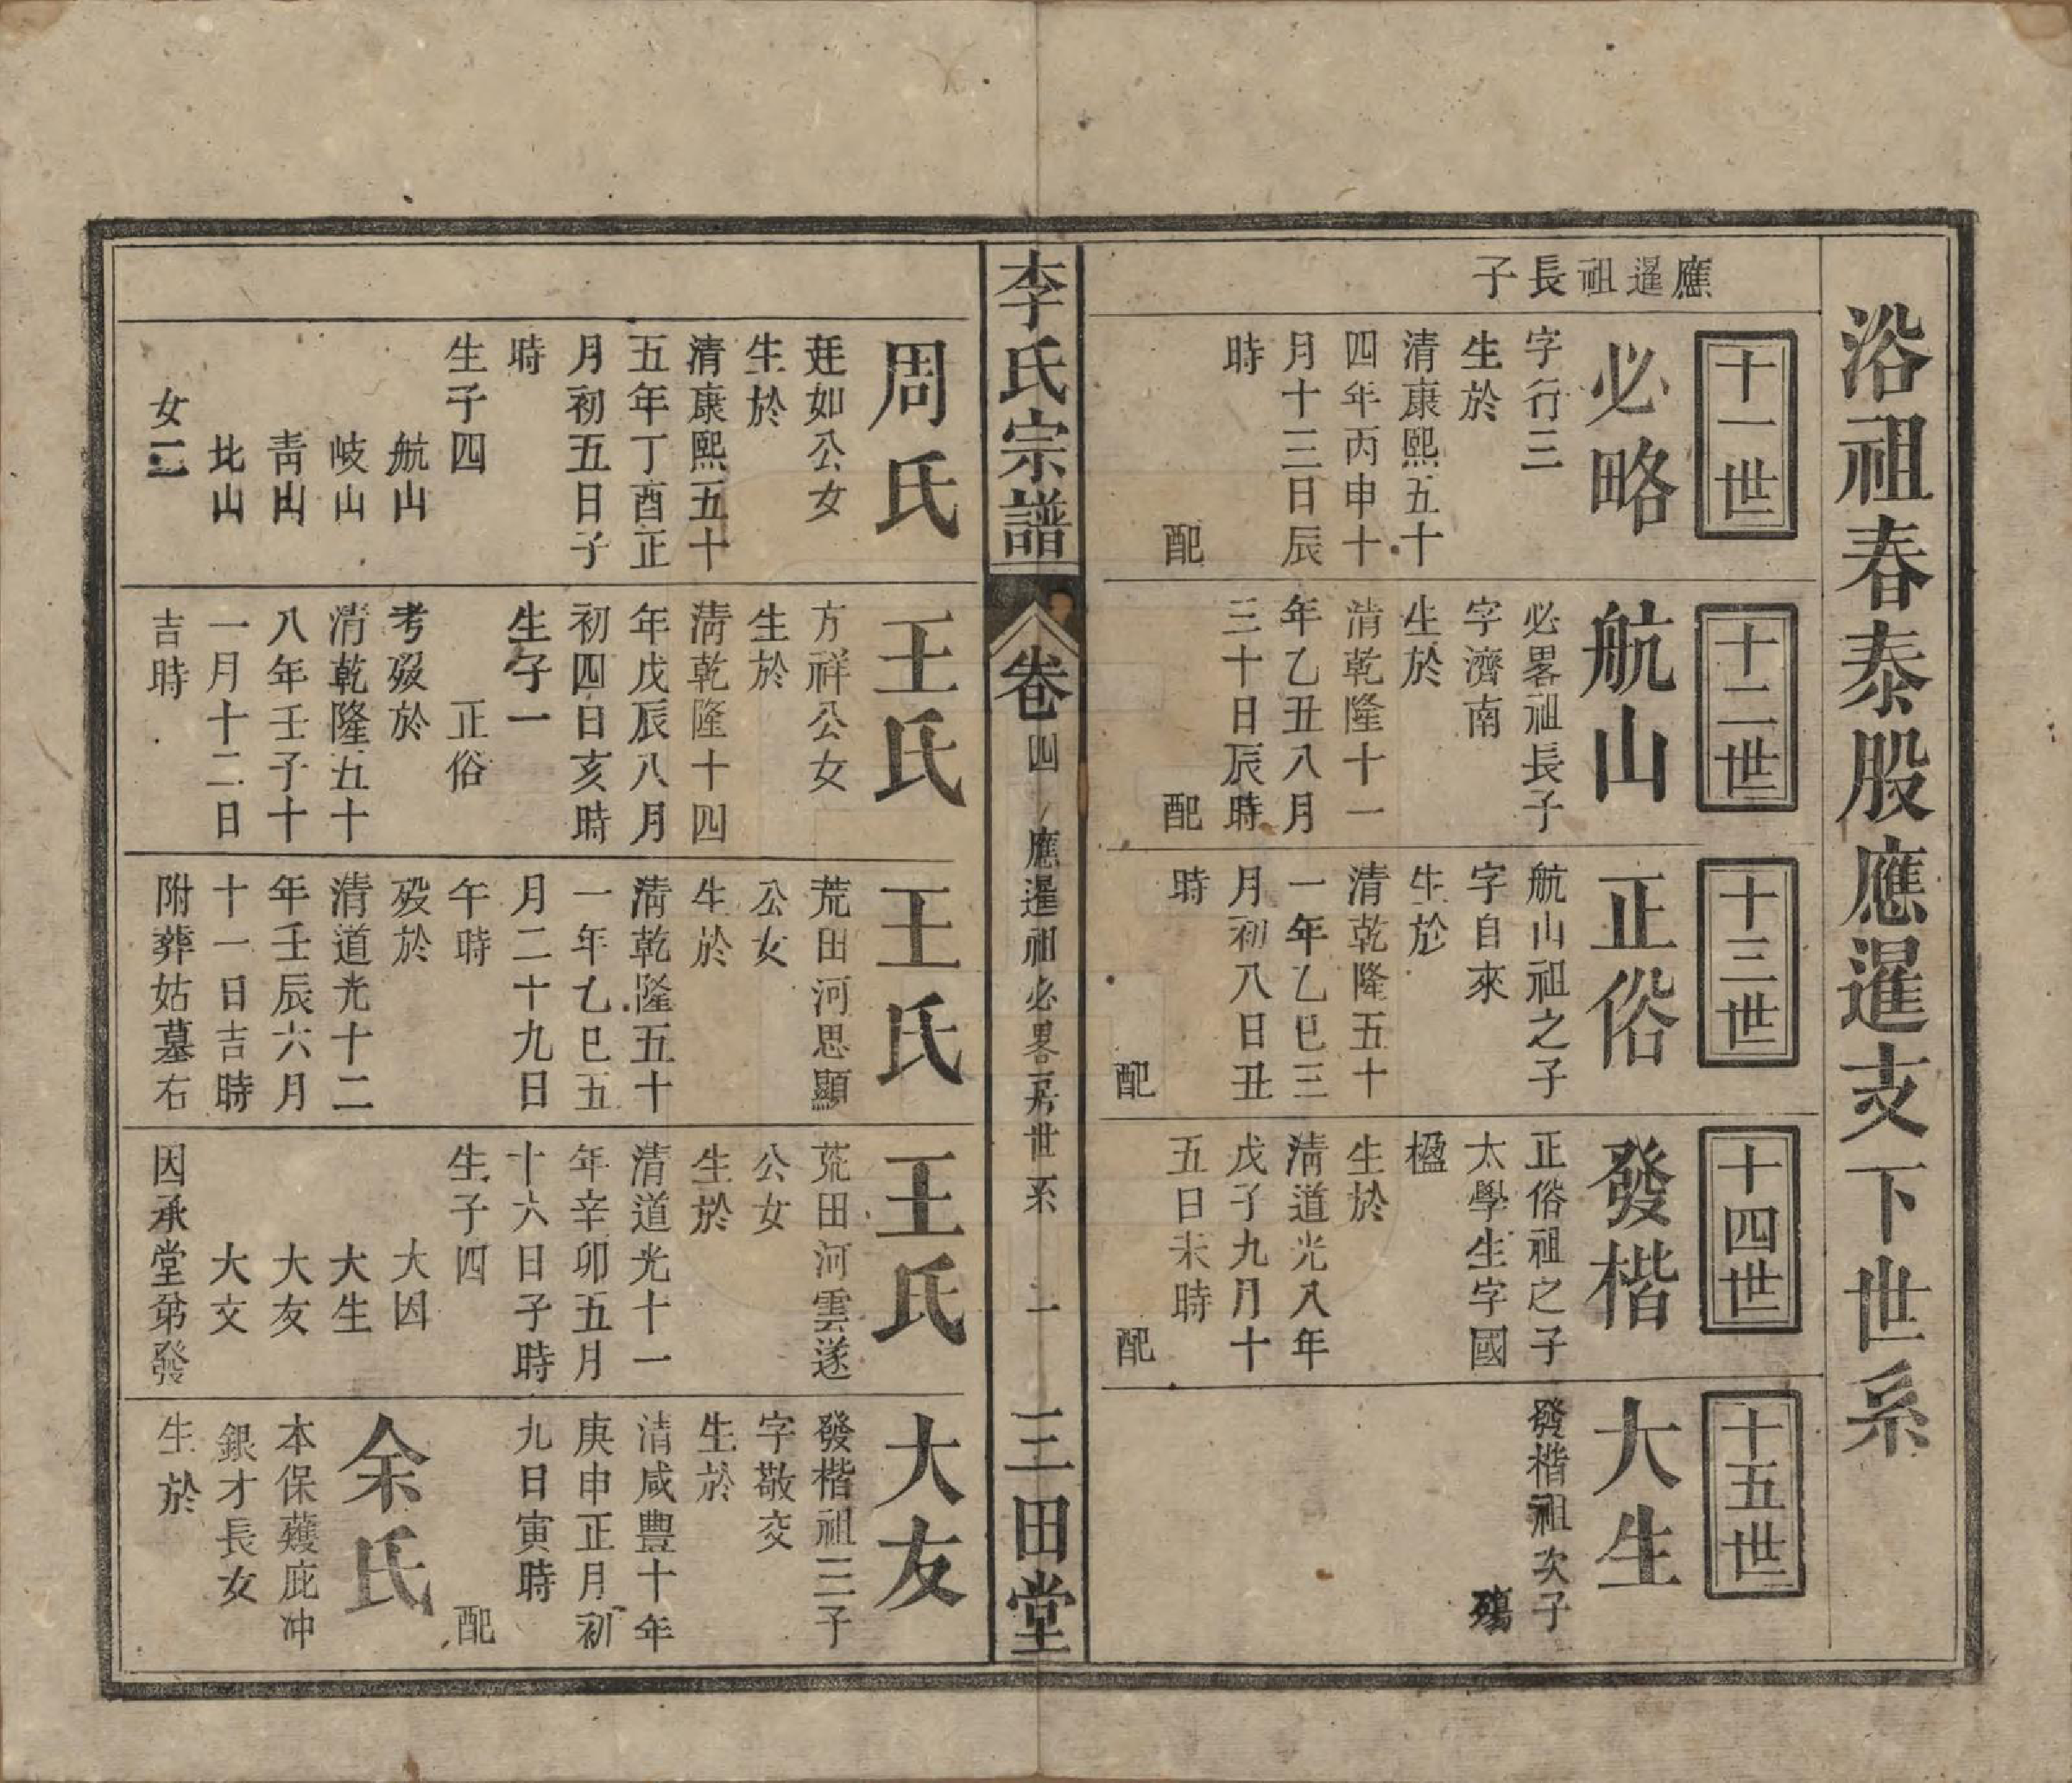 浴祖春泰股應暹支下世系
應暹祖長子
十一世
必略
字行三
生於
清康熙五十
四年丙申十
月十三日辰
時
配
十二世
航山
必畧祖長子
字濟南
生於
清乾隆十一
年乙丑八月
三十日辰時
配
十三世
正俗
航山祖之子
字自來
生於
清乾隆五十
一年乙巳三
月初八日丑
時
配
十四世
發楷
正俗祖之子
太學生字國
楹
生於
清道光八年
戊子九月十
五日未時
配
十五世
大生
發楷祖次子
殤
李氏宗譜
卷四
應暹祖必畧房世系
一
三田堂
周氏
廷如公女
生於
清康熙五十
五年丁酉正
月初五日子
時
生子四
航山
岐山
靑山
北山
女二
王氏
方祥公女
生於
淸乾隆十四
年戊辰八月
初四日亥時
生子一
正俗
考歿於
清乾隆五十
八年壬子十
一月十二日
吉時
王氏
荒田河思顯
公女
生於
淸乾隆五十
一年乙巳五
月二十九日
午時
歿於
清道光十二
年壬辰六月
十一日吉時
附葬姑墓右
王氏
荒田河雲遂
公女
生於
清道光十一
年辛卯五月
十六日子時
生子四
大因
大生
大友
大文
因承堂弟發
大友
發楷祖三子
字敬交
生於
清咸豐十年
庚申正月初
九日寅時
配
余氏
本保薐庇冲
銀才長女
生於